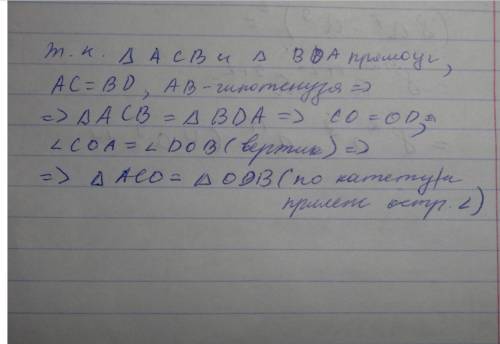 т.к. △ACB и △BDA прямоуг,
AC=BD, AB-гипотенуза =>
=> △ACB = △BDA => CO=OD,
∠COA=∠DOB (вертик) =>
=> △ACO = △ODB (по катету и
прилеж остр. ∠)